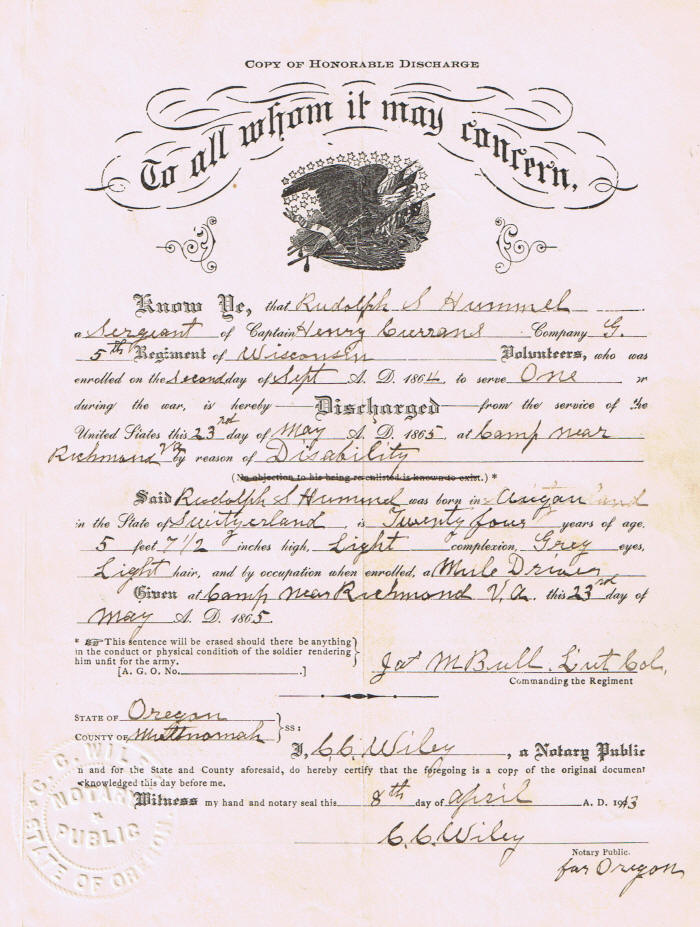 COPY OF HONORABLE DISCHARGE
To all whom it may concern,
Know Ye, that Rudolph S Hummel
a Sergeant of Captain Henry Currans Company G.
5th Regiment of Wisconsin Volunteers, who was
enrolled on the Second day of Sept A. D. 1864, to serve One or
during the war, is hereby Discharged from the service of the
United States this 23rd day of May A. D. 1865, at Camp near
Richmond Va by reason of Disability
(No objection to his being re-enlisted is known to exist.) *
Said Rudolph S Hummel was born in
in the State of Switzerland, is Twenty four years of age,
5 feet 7 1/2 inches high, Light complexion, Grey eyes,
Light hair, and by occupation when enrolled, a Mule Driver
Given at Camp near Richmond V.A. this 23rd day of
May A. D. 1865.
* ☞ This sentence will be erased should there be anything
in the conduct or physical condition of the soldier rendering
him unfit for the army.
[A. G. O. No. .]
M Bull. Lut Col,
Commanding the Regiment
STATE OF Oregon
COUNTY OF Multnomah
ss:
I, C. C. Wiley, a Notary Public
n and for the State and County aforesaid, do hereby certify that the foregoing is a copy of the original document
cknowledged this day before me.
Witness my hand and notary seal this 8th day of April A. D. 1913
C. C. Wiley
Notary Public.
for Oregon
C. C. WILEY
NOTARY
PUBLIC
STATE OF OREGON